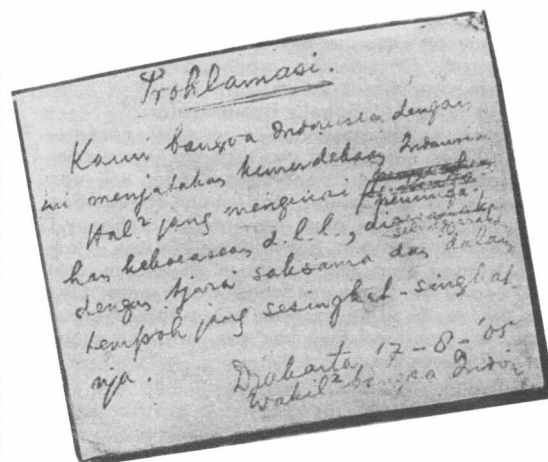 Proklamasi.
Kami bangsa Indonesia dengan
ini menjatakan kemerdekaan Indonesia
Hal² jang mengenai
han kekoeasaan d.l.l.,
dengan tjara saksama dan dalam
tempoh jang sesingkat-singkat
nja.
Djakarta, 17-8-'05
Wakil² bangsa Indon